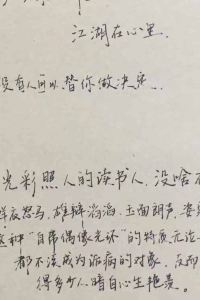 江湖在心里.
没有人可以替你做决定...
光彩照人的读书人,没啥
鲜衣怒马,雄辩滔滔,玉面朗声,姿
这种“自带偶像光环”的特质无论
都不该成为诟病的对象,反而
得多少人暗自心生艳羡。